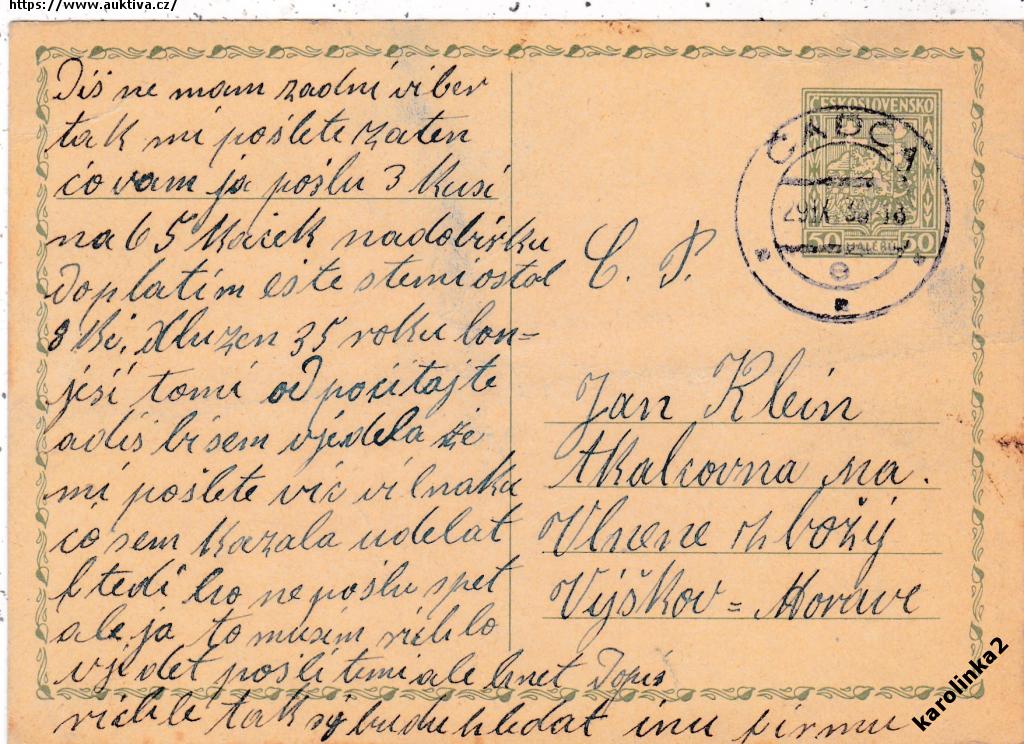 https://www.auktiva.cz/
Diš ne mam zadni viber
tak mi pošlete zaten
čo vam ja pošlu 3 kusi
na 65 Kaček nadobirku
Doplatim ešte stemi ostol
8 Kč. 35 roku lon-
jesi tomi odpočitajte
adiš bi sem vjedela že
mi pošlete vic vilnaku
čo sem kazala udelat
tedi ho ne pošlu spet
ale ja to musim richlo
vjedet pošli temi ale hnet Dopis
richle tak sy budu hledat inu pirmu
ČESKOSLOVENSKO
ČADCA
50 HALÉŘŮ 50
e
C. P.
Jan Klein
Tkalcovna na.
Vlnene zboží
Výškov = Morave
karolinka2